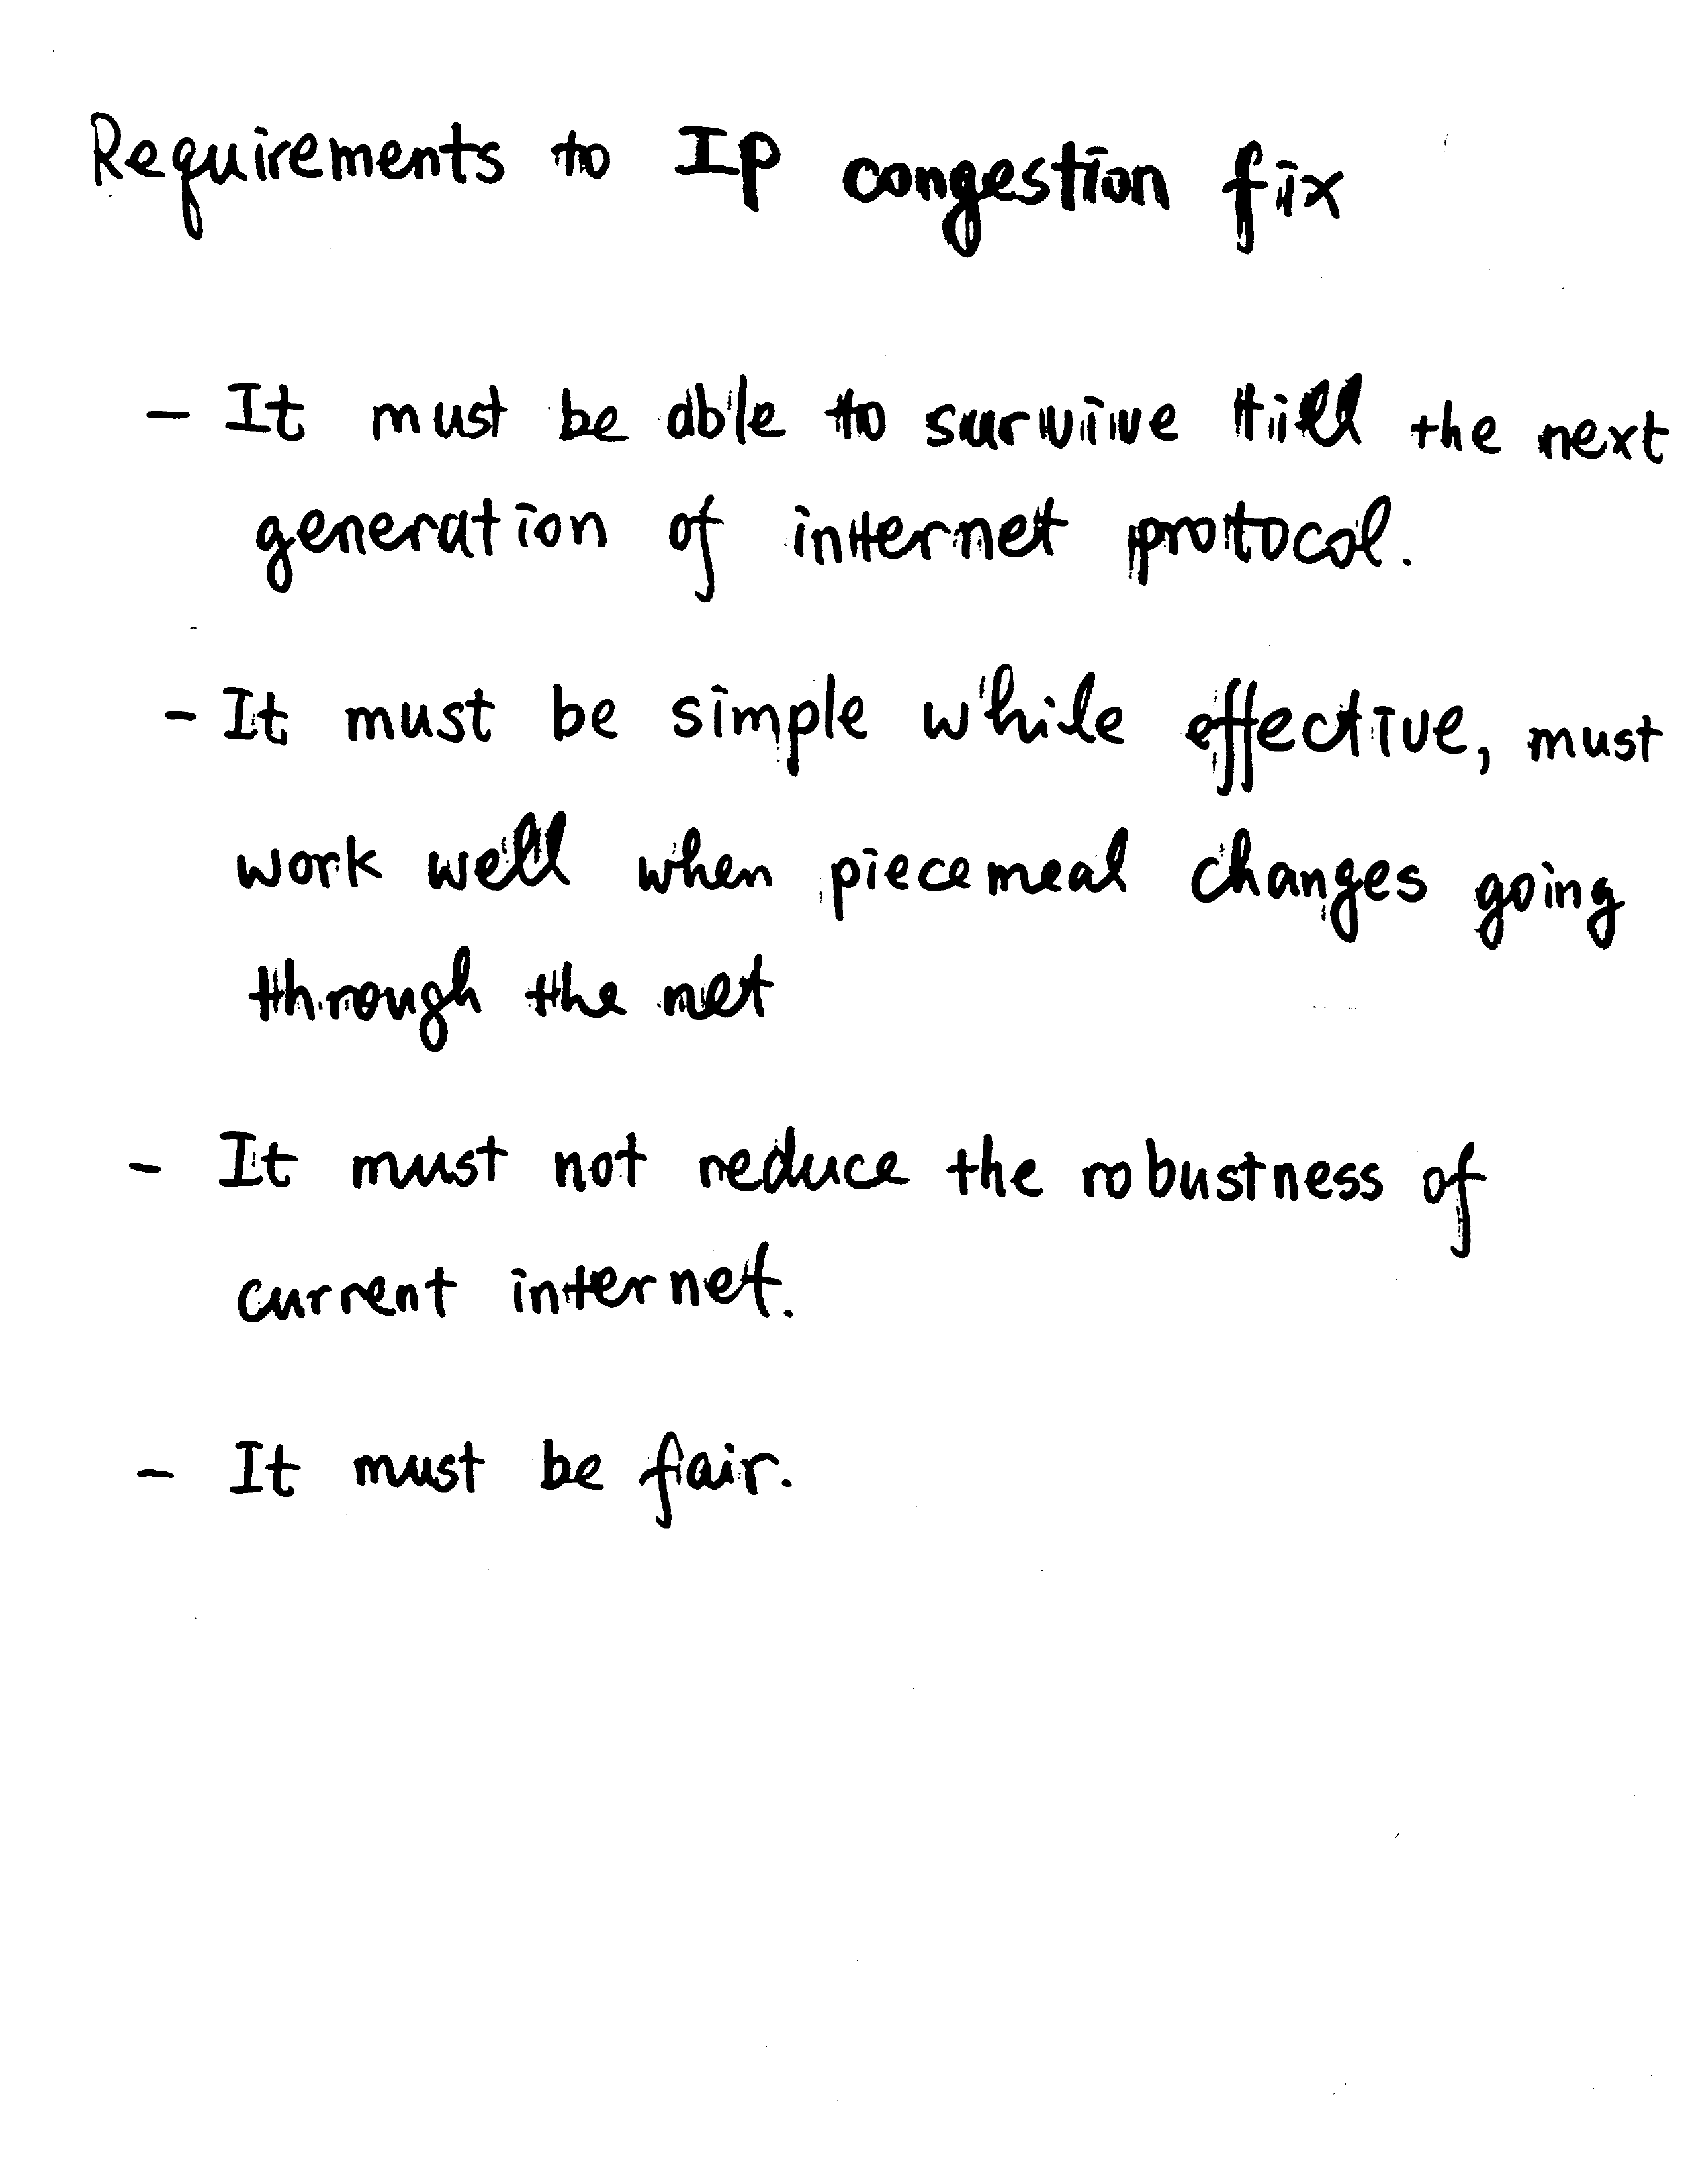 Requirements to IP congestion fix
- It must be able to survive till the next
generation of internet protocol.
- It must be simple while effective, must
work well when piecemeal changes going
through the net
- It must not reduce the robustness of
current internet.
- It must be fair.